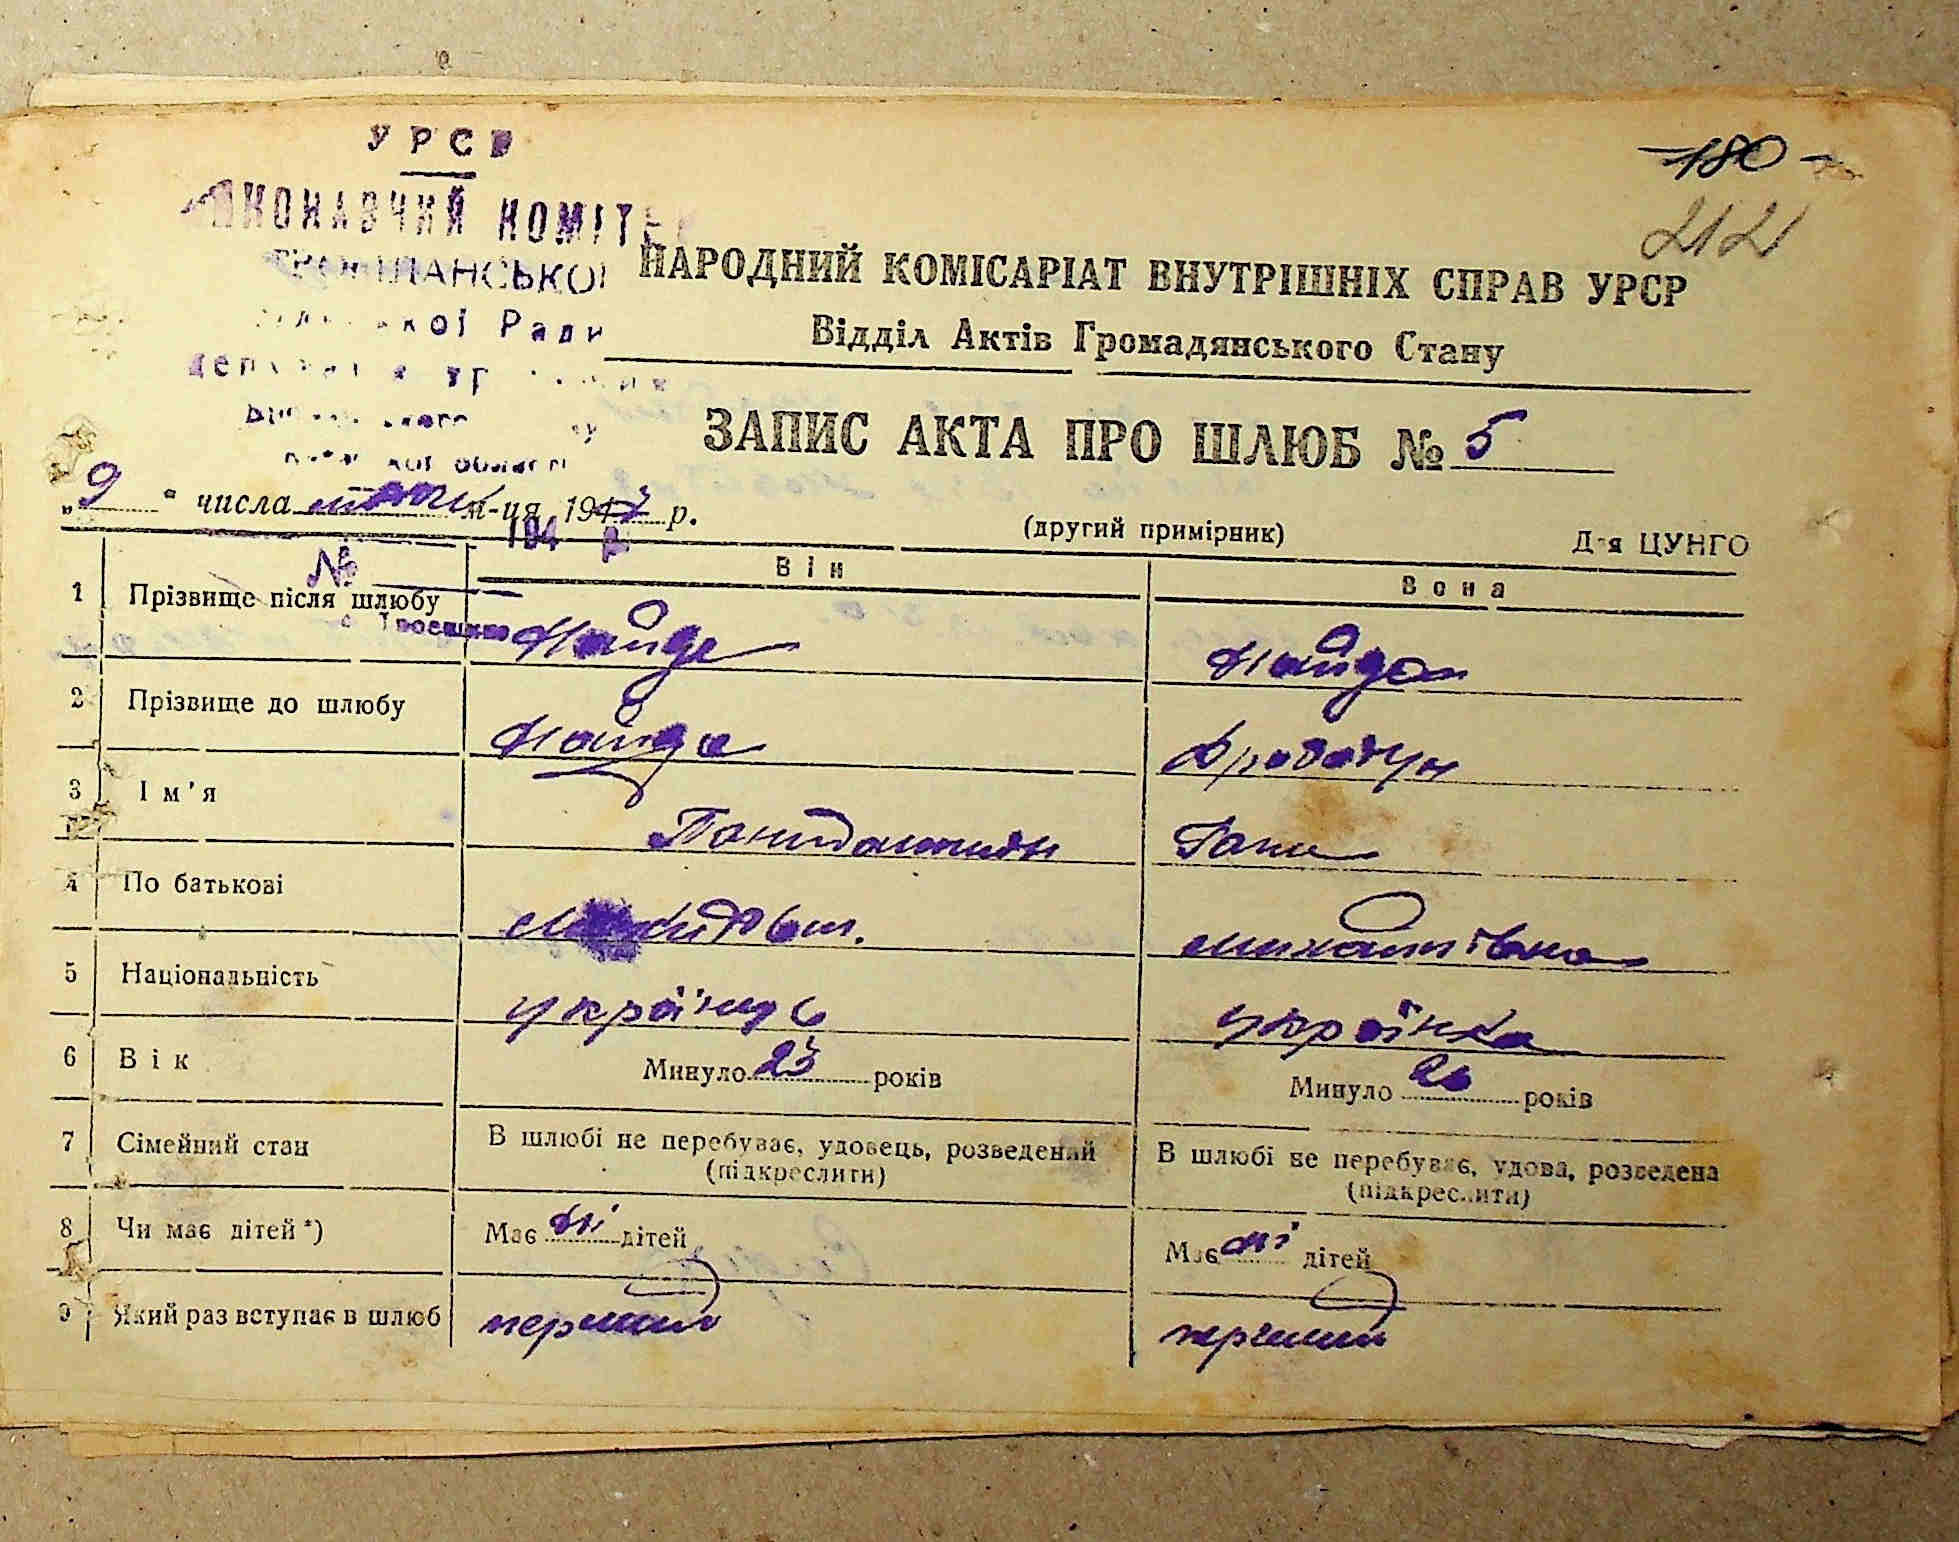 УРСР
-180-
212
ВИКОНАВЧИЙ КОМІТЕТ
НАРОДНИЙ КОМІСАРІАТ ВНУТРІШНІХ СПРАВ УРСР
Ради
Відділ Актів Громадянського Стану
ЗАПИС АКТА ПРО ШЛЮБ № 5
області
„9“ числа м-ця 1947 р.
(другий примірник)
Д-я ЦУНГО
194 р
№
Він
Вона
1 Прізвище після шлюбу Найда Найда
2 Прізвище до шлюбу Найда Дроботун
3 Ім'я Ганна
4 По батькові Михайлівна
5 Національність українець українка
6 Вік Минуло 23 років Минуло років
7 Сімейний стан В шлюбі не перебуває, удовець, розведений В шлюбі не перебуває, удова, розведена
(підкреслити) (підкреслити)
8 Чи має дітей*) Має ні дітей Має ні дітей
9 Який раз вступає в шлюб перший перший